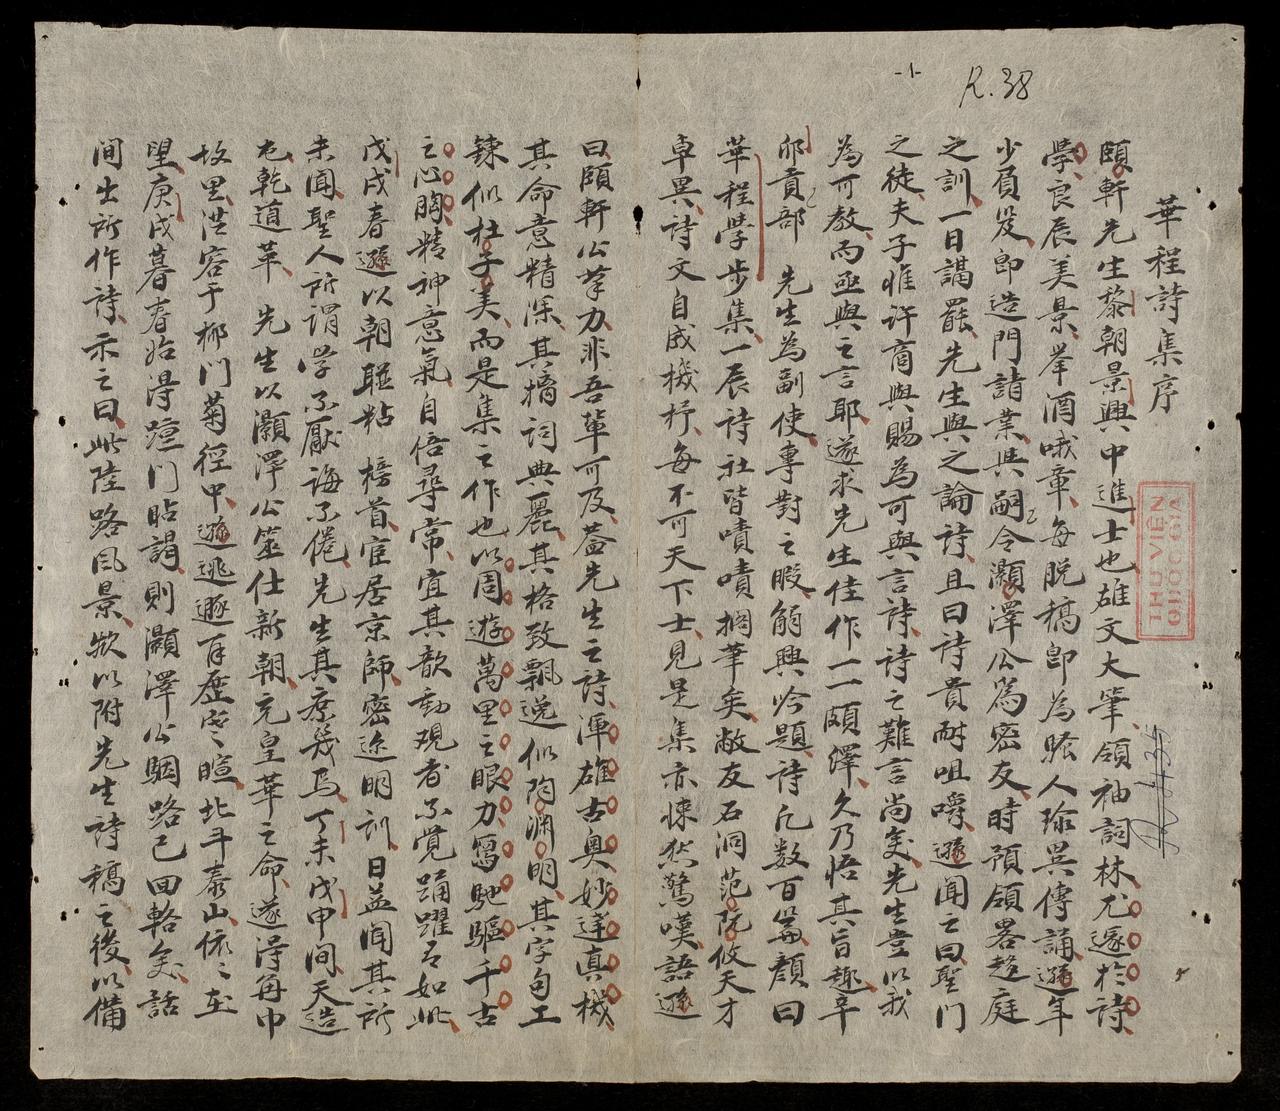 -1-
R.38
華程詩集序
頤軒先生黎朝景興中進士也雄文大筆領袖詞林尤邃於詩
學良辰美景舉酒哦章每脫稿即為騷人珍異傳誦遜年
少負笈即造門請業與嗣令灝澤公為密友時預領畧趨庭
之訓一日謁罷先生與之論詩且曰詩貴耐咀嚼遜聞之曰聖門
之徒夫子惟許商與賜為可與言詩詩之難言尚矣先生豈以我
為可教而亟與之言耶遂求先生佳作一一頗繹久乃悟其旨趣辛
卯貢部先生為副使專對之暇觴興吟題詩凡数百篇顏曰
華程學步集一展詩社皆嘖嘖擱筆矣敝友石洞范阮攸天才
卓異詩文自成機杼每不可天下士見是集亦悚然驚嘆語遜
曰頤軒公筆力非吾輩可及蓋先生之詩渾雄古奥妙逹真機
其命意精深其摛詞典麗其格致飄逸似陶渊明其字句工
鍊似杜子美而是集之作也以周遊萬里之眼力寫馳驅千古
之心胸精神意氣自倍尋常宜其歆動观者不覺踊躍有如此
戊戌春遜以朝聯粘榜首宦居京師密迩明訓日益闻其所
未闻聖人所謂学不厭誨不倦先生其庶幾焉丁未戊申间天造
乾道革先生以灝澤公筮仕新朝充皇華之命遂得毎中
故里洪容于椰门菊徑中遜逃遯有歷寒暄北斗泰山依々在
望庚戌暮春始得踵门貼謁則灝澤公駰路已回輅矣話
间出所作詩示之曰此陸路风景欲以附先生詩稿之後以備
THƯ VIỆN
QUỐC GIA